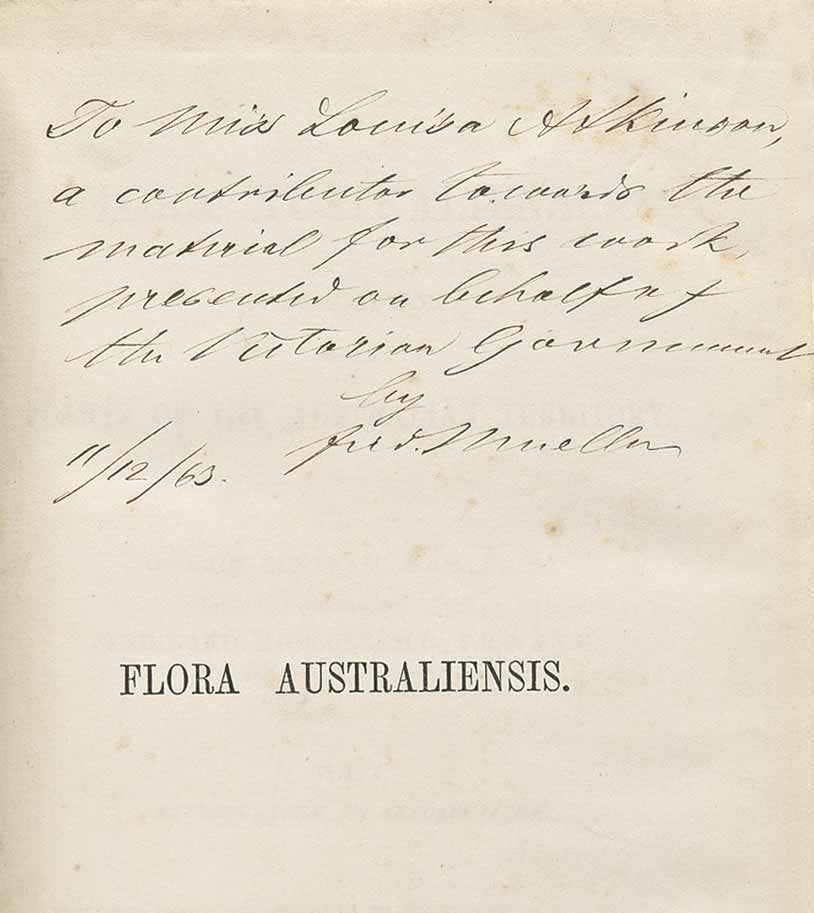 To Miss Louisa Atkinson,
a contributor towards the
material for this work,
presented on behalf of
the Victorian Government
by
Ferd. Mueller
11/12/63.
FLORA AUSTRALIENSIS.